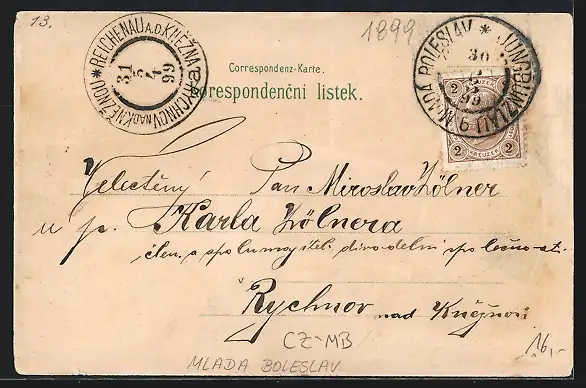 13.
1899
* REICHENAU A.D. KNĚŽNA * RYCHNOV NAD KNĚŽNOU
31
5
4
99
MLADÁ BOLESLAV * JUNGBUNZLAU
30
99
2 2
KREUZER
2 2
Correspondenz-Karte.
Korespondenční listek.
Velectěný Pan Miroslav Zölner
u p. Karla Zölnera
člen a spolumajitel divadelní společnosti
Rychnov nad Kněžnou
CZ-MB
MLADA BOLESLAV
16,-